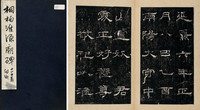 桐柏淮源廟碑
延熹六年正
月八日乙酉
南陽太守中
山盧奴君
處正好禮尊
神敬祀以淮